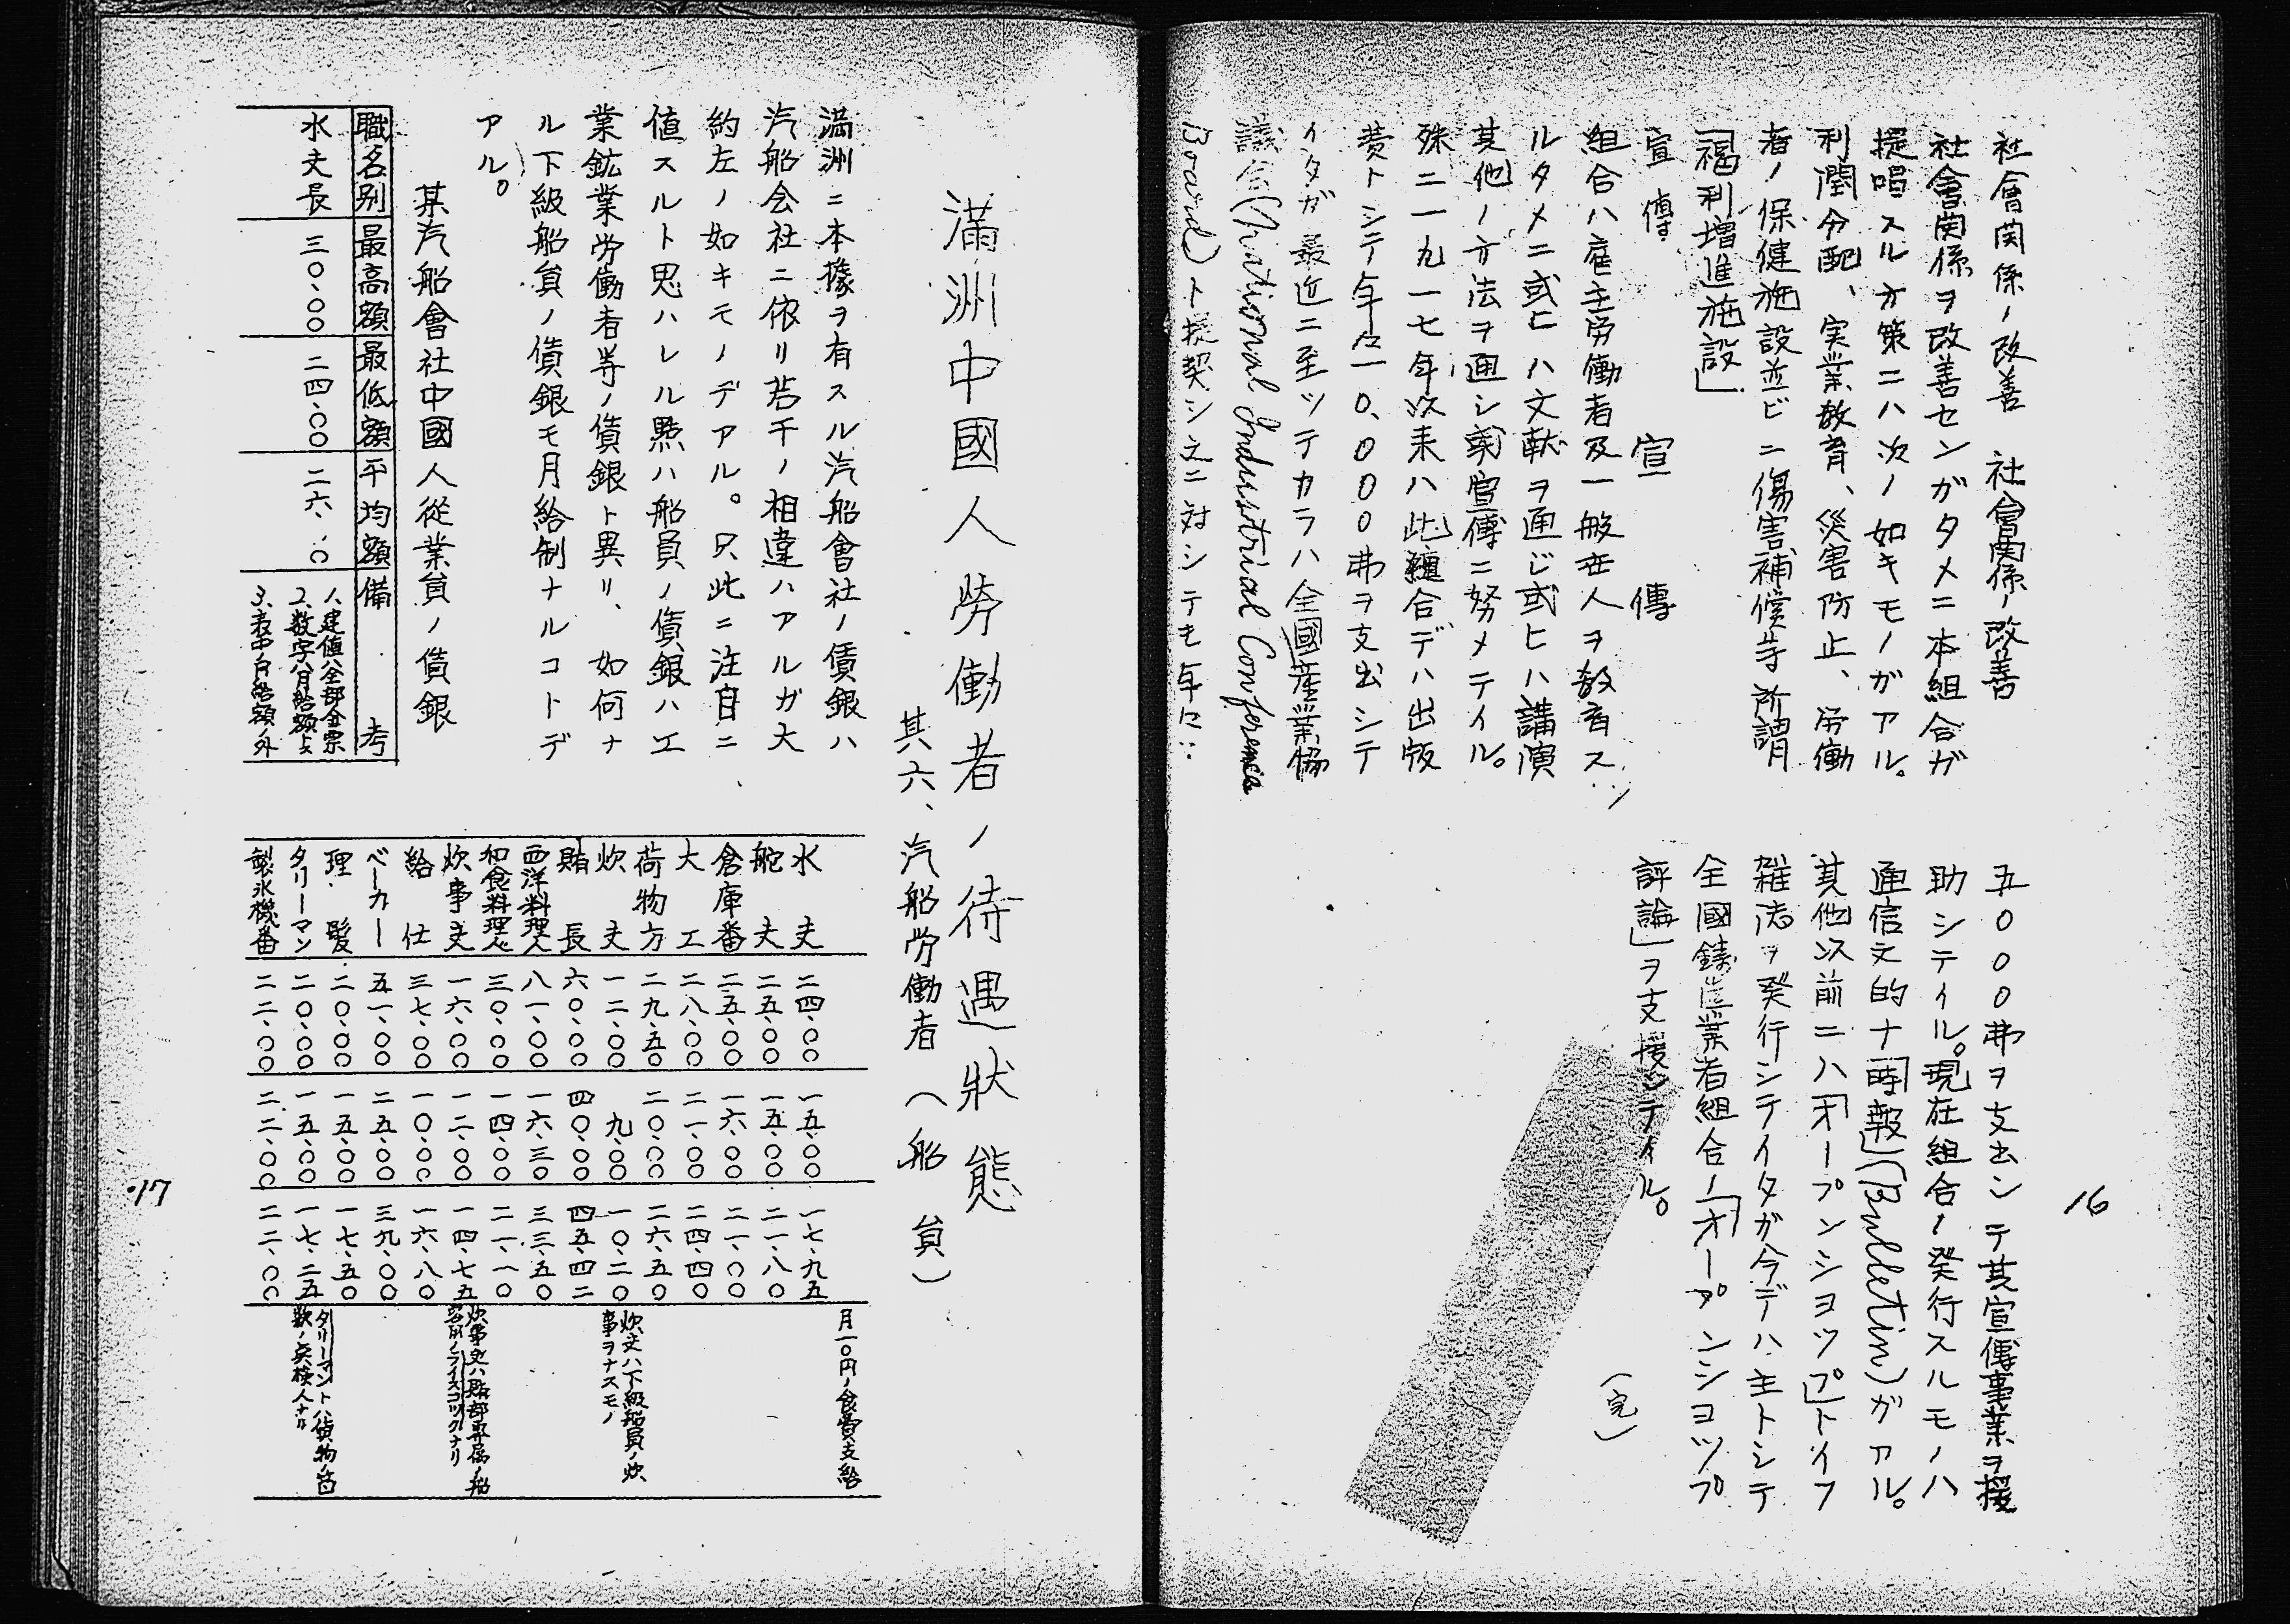 社會関係ノ改善　社會関係ノ改善
社會関係ヲ改善センガタメニ本組合ガ
提唱スル方策ニハ次ノ如キモノガアル。
利潤分配、実業教育、災害防止、労働
者ノ保健施設並ビニ傷害補償等所謂
「福利増進施設」
宣傳　宣傳
組合ハ雇主労働者及一般世人ヲ教育ス
ルタメニ或ヒハ文献ヲ通ジ或ヒハ講演
其他ノ方法ヲ通シ宣傳ニ努メテイル。
殊ニ一九一七年以来ハ此組合デハ出版
費トシテ年々一〇、〇〇〇弗ヲ支出シテ
イタガ最近ニ至ッテカラハ全國産業協
議会(National Industrial Conference
Board)ト提契シ之ニ対シテモ年々
五〇〇〇弗ヲ支出シテ其宣傳事業ヲ援
助シテイル。現在組合ノ発行スルモノハ
通信文的ナ「時報」(Bulletin)ガアル。
其他以前ニハ「オープンショツプ」トイフ
雑誌ヲ発行シテイタガ今デハ主トシテ
全國鋳造業者組合ノ「オープンショツプ
評論」ヲ支援シテイル。
（完）
16
滿洲中國人勞働者ノ待遇狀態
其六、汽船労働者（船員）
満洲ニ本據ヲ有スル汽船會社ノ賃銀ハ
汽船会社ニ依リ若干ノ相違ハアルガ大
約左ノ如キモノデアル。只此ニ注目ニ
値スルト思ハレル点ハ船員ノ賃銀ハ工
業鉱業労働者等ノ賃銀ト異リ、如何ナ
ル下級船員ノ賃銀モ月給制ナルコトデ
アル。
某汽船會社中國人從業員ノ賃銀
職名別　最高額　最低額　平均額　備考
水夫長　三〇、〇〇　二四、〇〇　二六、　〇
1、建値ハ全部金票
2、数字ハ月給額
3、表中ノ月給額ノ外
水夫　二四、〇〇　一五、〇〇　一七、九五　月一〇円ノ食費支給
舵夫　二五、〇〇　一五、〇〇　二一、八〇
倉庫番　二五、〇〇　一六、〇〇　二一、〇〇
大工　二八、〇〇　二一、〇〇　二四、四〇
荷物方　二九、五〇　二〇、〇〇　二六、五〇
炊夫　一二、〇〇　九、〇〇　一〇、二〇　炊夫ハ下級船員ノ炊事ヲナスモノ
賄長　六〇、〇〇　四〇、〇〇　四五、四二
西洋料理人　八一、〇〇　一六、三〇　三三、五〇
和食料理人　三〇、〇〇　一四、〇〇　二一、一〇
炊事夫　一六、〇〇　一二、〇〇　一四、七五　炊事夫ハ賄部専属ノ船客用ノライスコックナリ
給仕　三七、〇〇　一〇、〇〇　一六、八〇
ベーカー　五一、〇〇　二五、〇〇　三九、〇〇
理髪　二〇、〇〇　一五、〇〇　一七、五〇
タリーマン　二〇、〇〇　一五、〇〇　一七、二五　タリーマントハ貨物ノ箇数ノ点検人ナリ
製氷機番　二二、〇〇　二二、〇〇　二二、〇〇
17